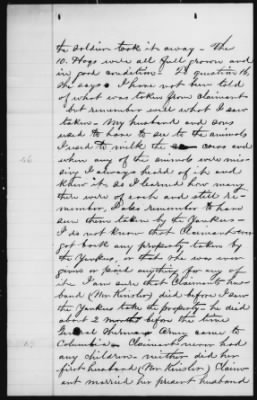 the soldiers took it away - The
10. Hogs were all full grown and
in good condition - To question 16,
she says - I have not been told
of what was taken from claimant
but remember well what I saw
taken - My husband and sons
used to have to see to the animals
I used to milk the cows and
when any of the animals were mis-
sing I always heard of it and
knew it. So I learned how many
there were of each and still re-
member, I also remember to have
seen them taken by the Yankees -
I do not know that Claimant ever
got back any property taken by
the Yankees, or that she was ever
given or paid anything for any of
it. I am sure that Claimants hus-
band (Mr Kinsler) died before I saw
the Yankees take the property - he died
about 2 months before the time
General Shermans Army came to
Columbia - Claimant never had
any children - neither did her
first husband (Mr. Kinsler) Claim-
ant married her present husband